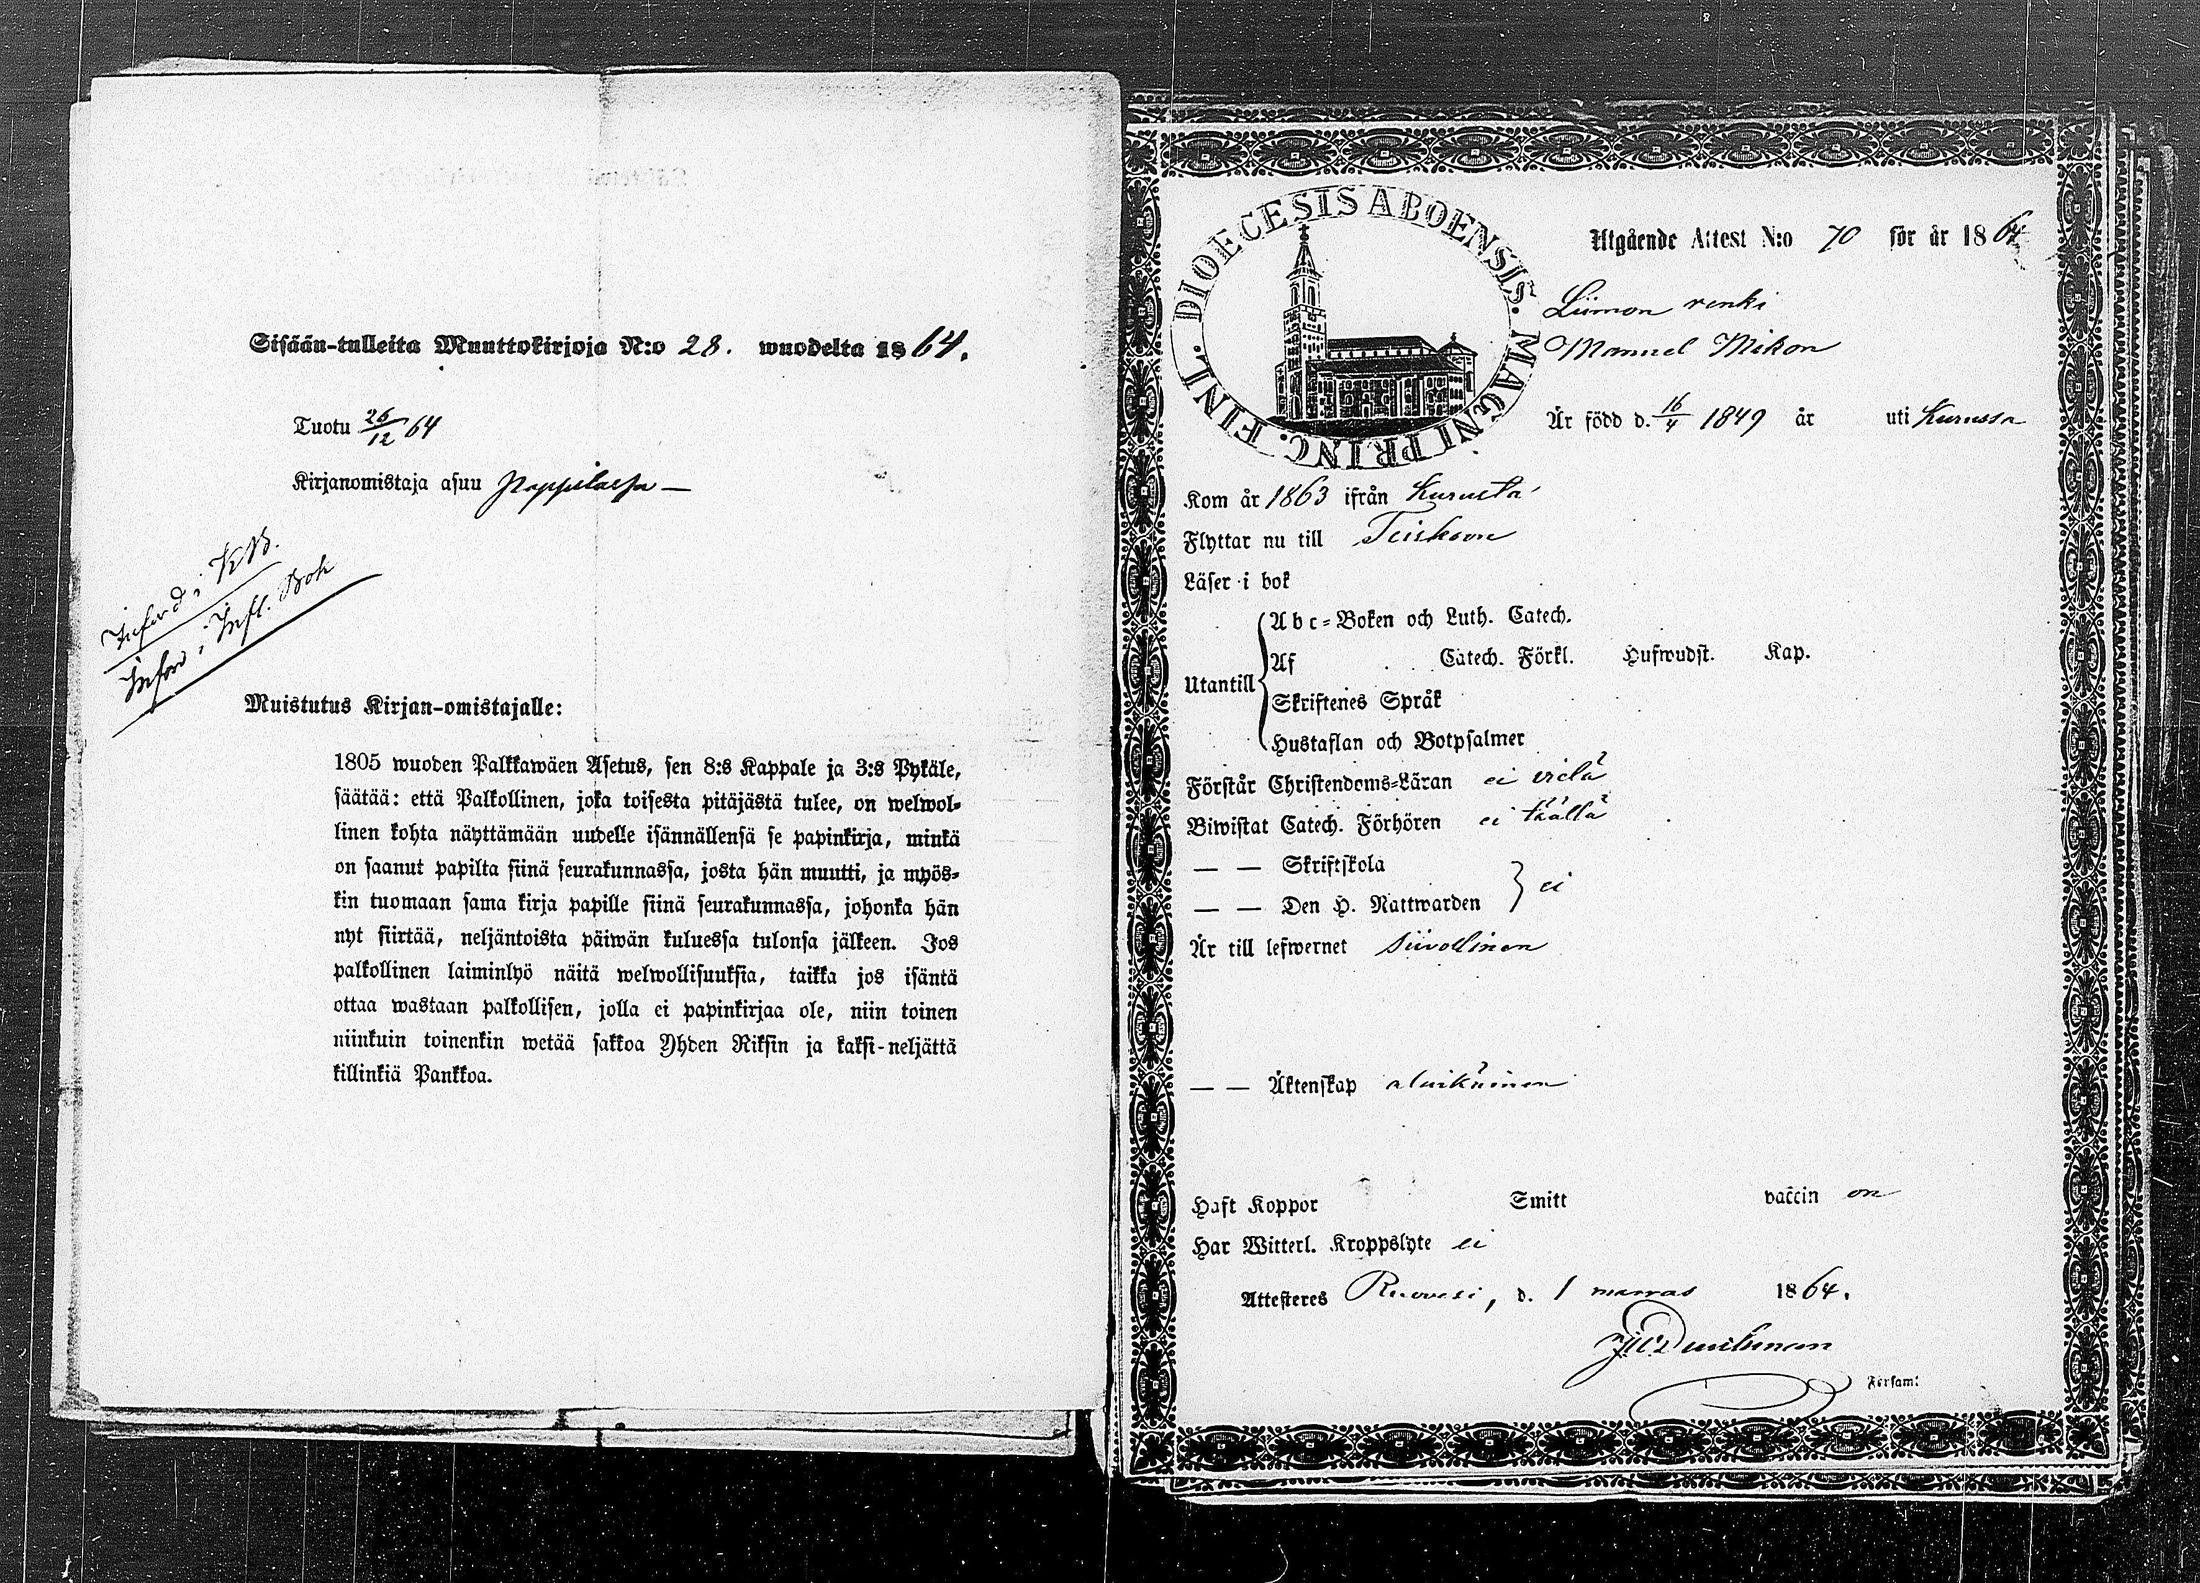 Sisään-tulleita Muuttokirjoja N:o 28. wuodelta 1864.
Tuotu 26/12 64
Kirjanomistaja asuu Pappilassa —
Inford i KB.
Inford i Infl. Bok
Muistutus Kirjan-omistajalle:
1805 wuoden Palkkawäen Asetus, sen 8:s Kappale ja 3:s Pykäle,
säätää: että Palkollinen, joka toisesta pitäjästä tulee, on welwol-
linen kohta näyttämään uudelle isännällensä se papinkirja, minkä
on saanut papilta siinä seurakunnassa, josta hän muutti, ja myös-
kin tuomaan sama kirja papille siinä seurakunnassa, johonka hän
nyt siirtää, neljäntoista päiwän kuluessa tulonsa jälkeen. Jos
palkollinen laiminlyö näitä welwollisuuksia, taikka jos isäntä
ottaa wastaan palkollisen, jolla ei papinkirjaa ole, niin toinen
niinkuin toinenkin wetää sakkoa Yhden Riksin ja kaksi-neljättä
killinkiä Pankkoa.
DIOECESIS ABOENSIS. MAGNI PRINC. FINL.
Utgående Attest N:o 70 för år 1864
Liimon renki
Manuel Mikon
Är född d. 16/4 1849 år uti Kurussa
Kom år 1863 ifrån Kurusta
Flyttar nu till Teiskoon
Läser i bok
Utantill
Abc-Boken och Luth. Catech.
Af Catech. Förkl. Hufwudst. Kap.
Skriftenes Språk
Hustaflan och Botpsalmer
Förstår Christendoms-Läran ei vielä
Biwistat Catech. Förhören ei täällä
— — Skriftskola
— — Den H. Nattwarden } ei
Är till lefwernet siivollinen
— — Äktenskap alaikäinen
Haft Koppor Smitt vaccin on
Har Witterl. Kroppslyte ei
Attesteres Ruovesi, d. 1 marras 1864.
Församl